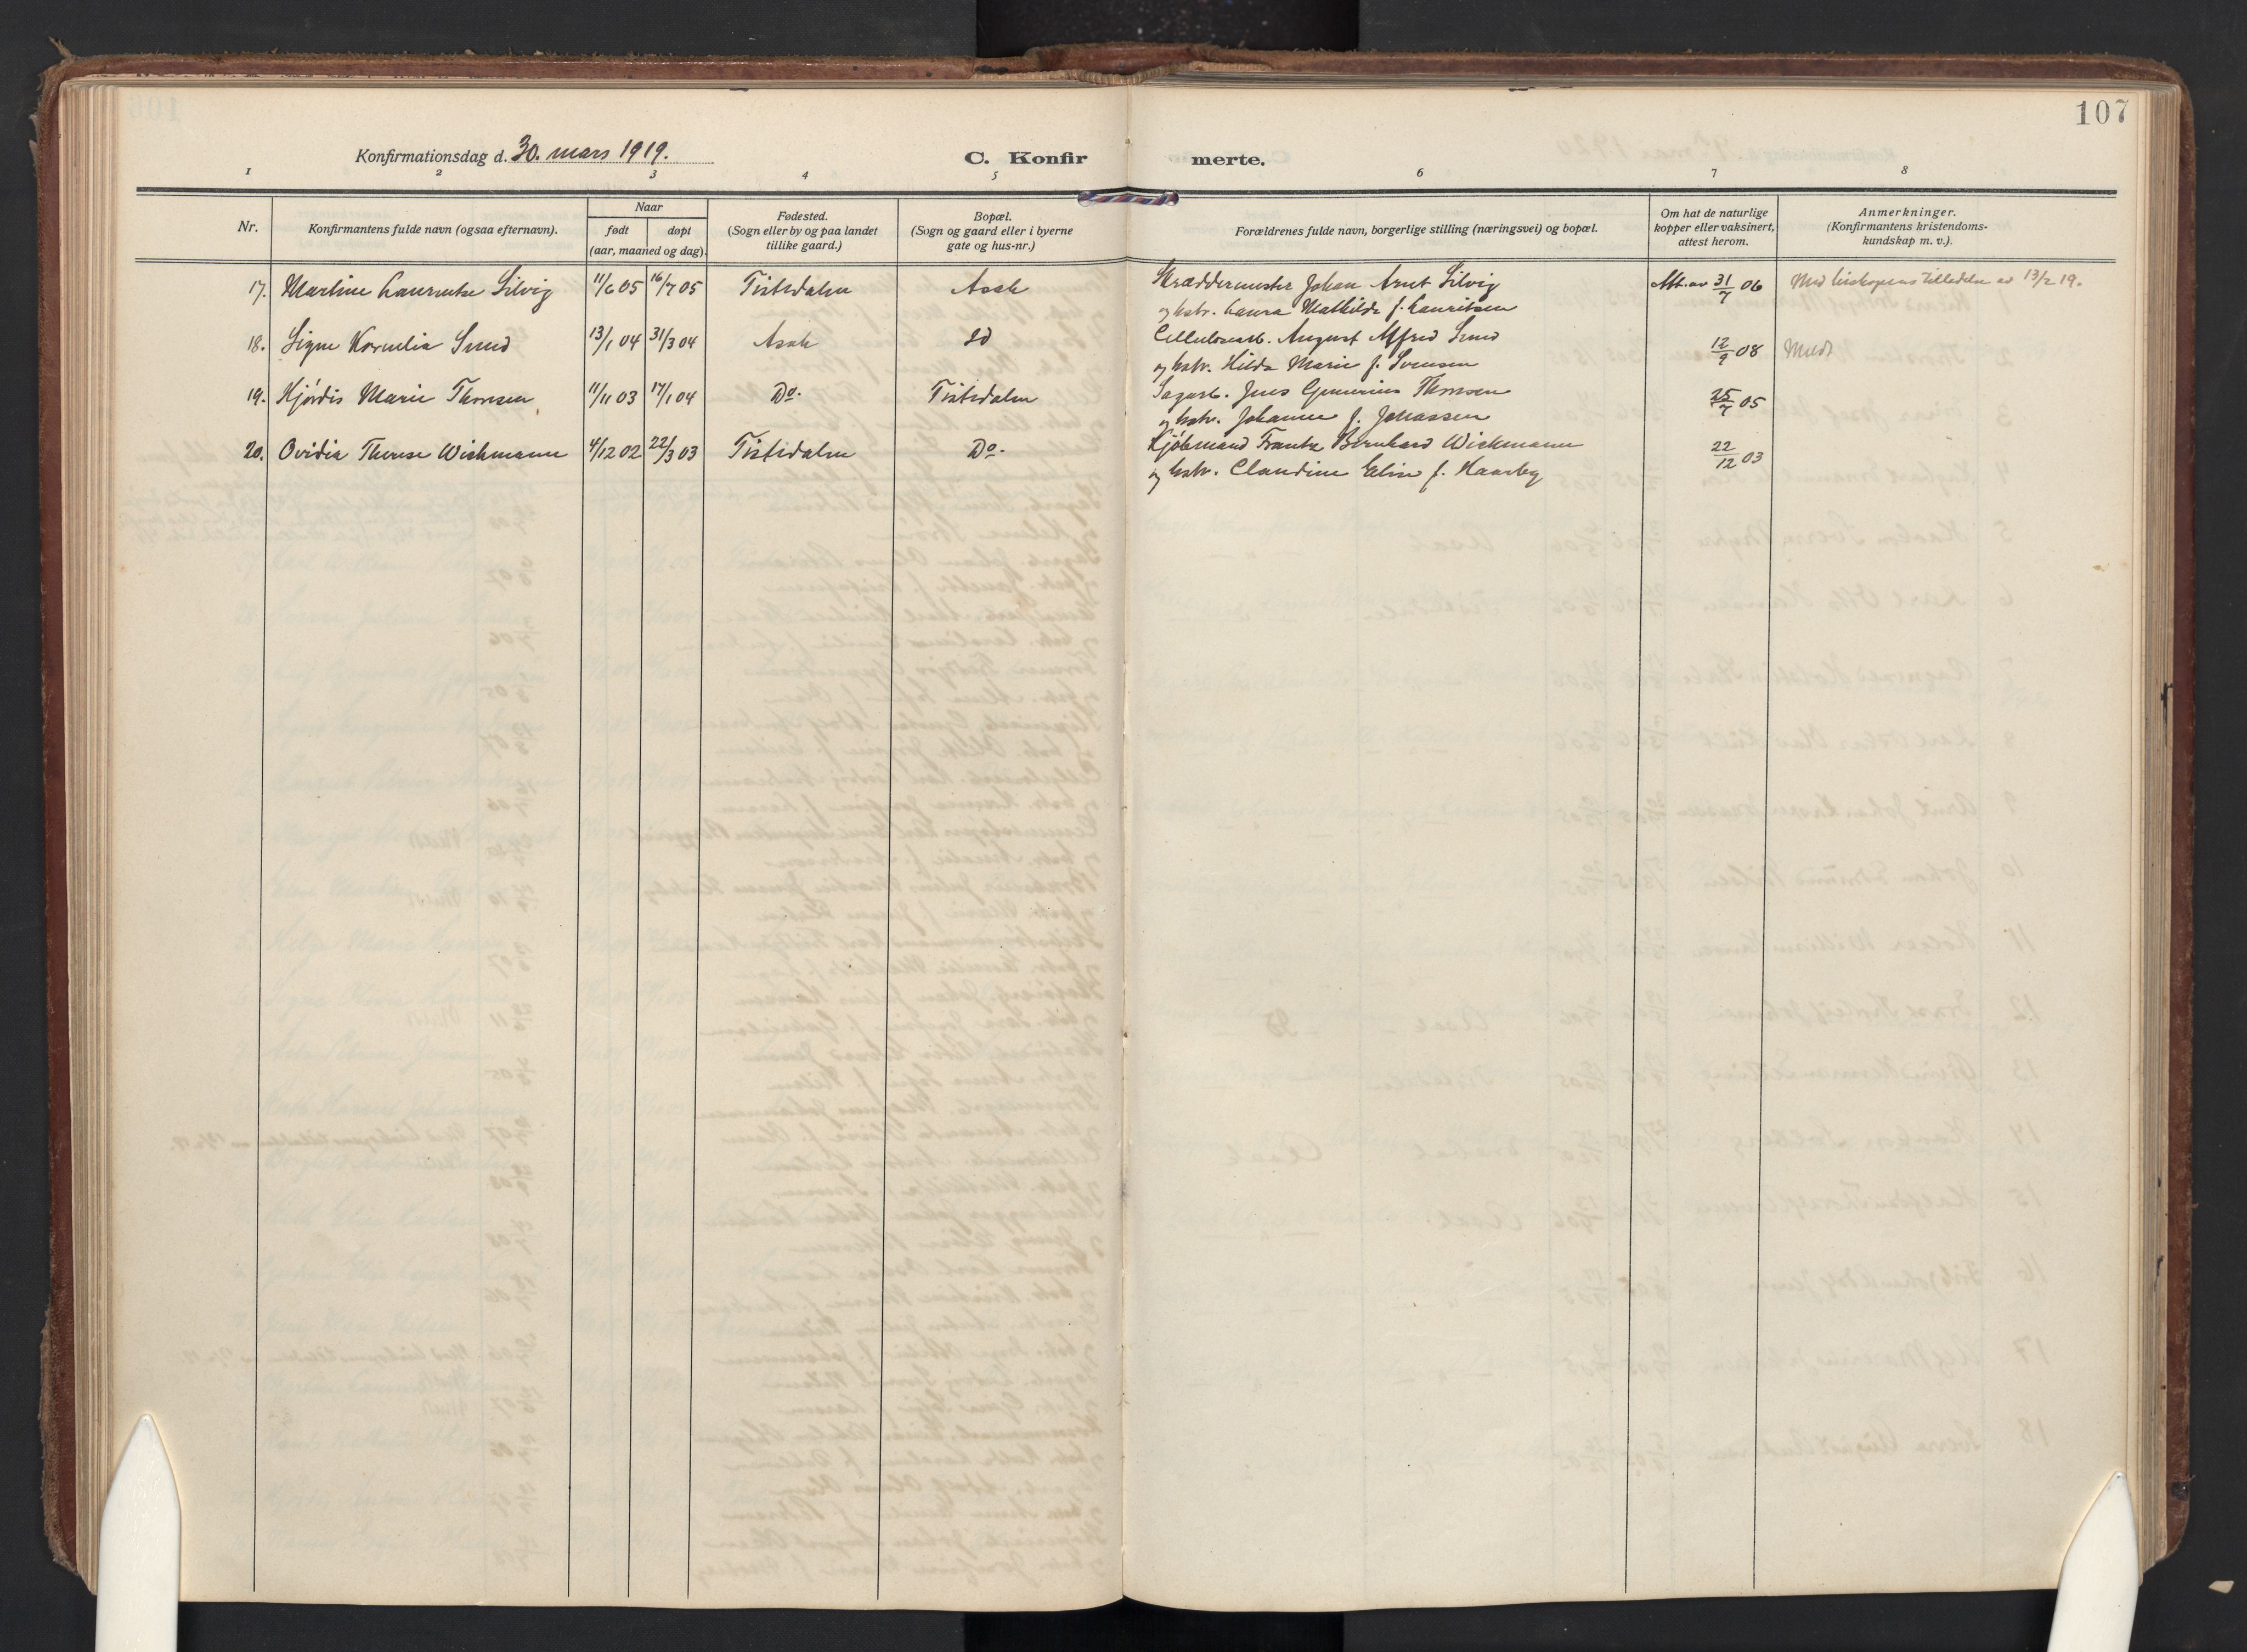 107
Konfirmationsdag d. 30. mars 1919.
C. Konfir merte.
1 2 3 4 5 6 7 8
Nr.
Konfirmantens fulde navn (ogsaa efternavn).
Naar
født døpt
(aar, maaned og dag).
Fødested.
(Sogn eller by og paa landet
tillike gaard.)
Bopæl.
(Sogn og gaard eller i byerne
gate og hus-nr.)
Forældrenes fulde navn, borgerlige stilling (næringsvei) og bopæl.
Om hat de naturlige
kopper eller vaksinert,
attest herom.
Anmerkninger.
(Konfirmantens kristendoms-
kundskap m. v.).
17. Martine Laurentse Silvig 11/6 05 16/7 05 Tistedalen Asak Skræddermester Johan Arnt Silvig Att. av 31/7 06 Med biskopens tilladelse av 13/2 19.
og hstr. Laura Mathilde f. Lauritsen
18. Signe Kornelia Sund 13/1 04 31/3 04 Asak Id Cellulosearb. August Alfred Sund 12/9 08 Meldt
og hstr. Hilda Marie f. Svensen
19. Hjørdis Marie Thomsen 11/11 03 17/1 04 Do. Tistedalen Sagarb. Jens Gunerius Thomsen 25/7 05
og hstr. Johanne f. Johassen
20. Ovidia Therese Wichmann 4/12 02 22/3 03 Tistedalen Do. Kjøbmand Frantz Bernhard Wichmann 22/12 03
og hstr. Claudine Elise f. Haarby